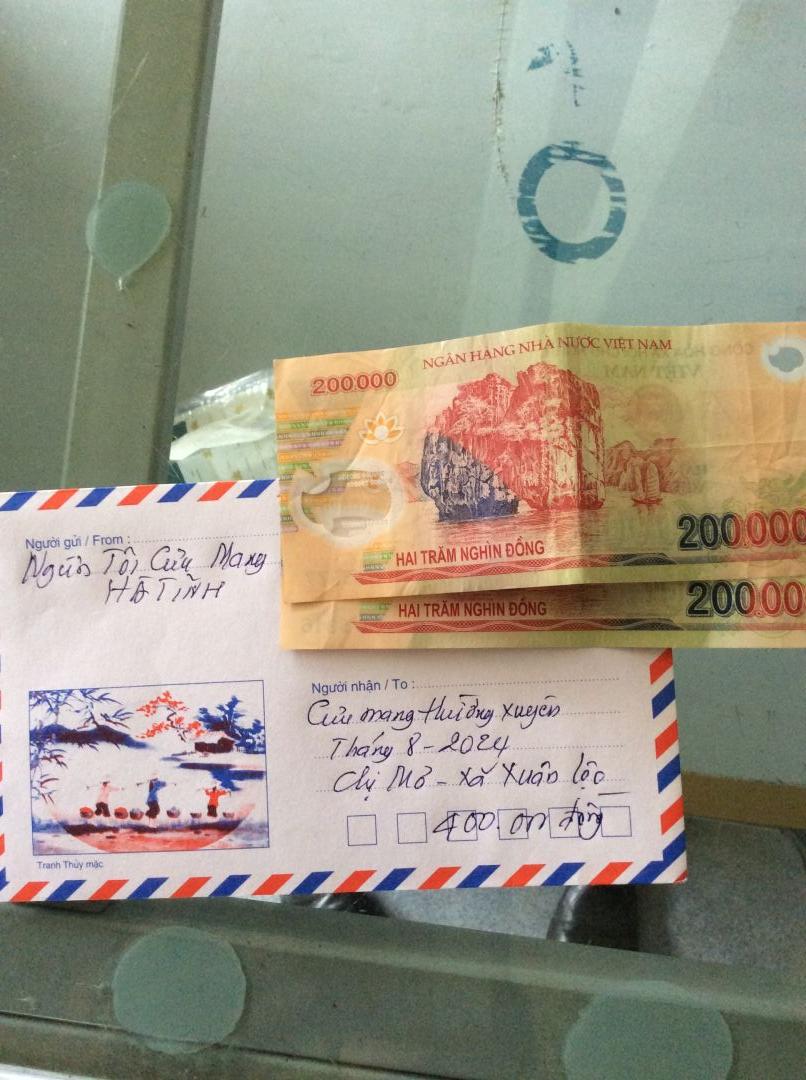 NGÂN HÀNG NHÀ NƯỚC VIỆT NAM
200.000
200.000
HAI TRĂM NGHÌN ĐỒNG
HAI TRĂM NGHÌN ĐỒNG
200.00
Người gửi / From :
Mang
HÀ TĨNH
Người nhận / To :
Cưu mang thường xuyên
Tháng 8 - 2024
Chị Mơ - Xã Xuân Lộc
400.000 đồng
Tranh Thủy mặc